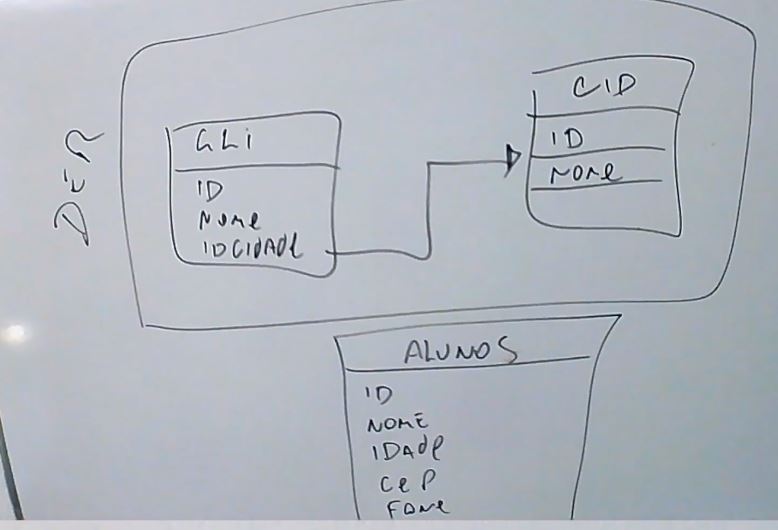 DER
CLI
ID
NOME
IDCIDADE
CID
ID
NOME
ALUNOS
ID
NOME
IDADE
CEP
FONE